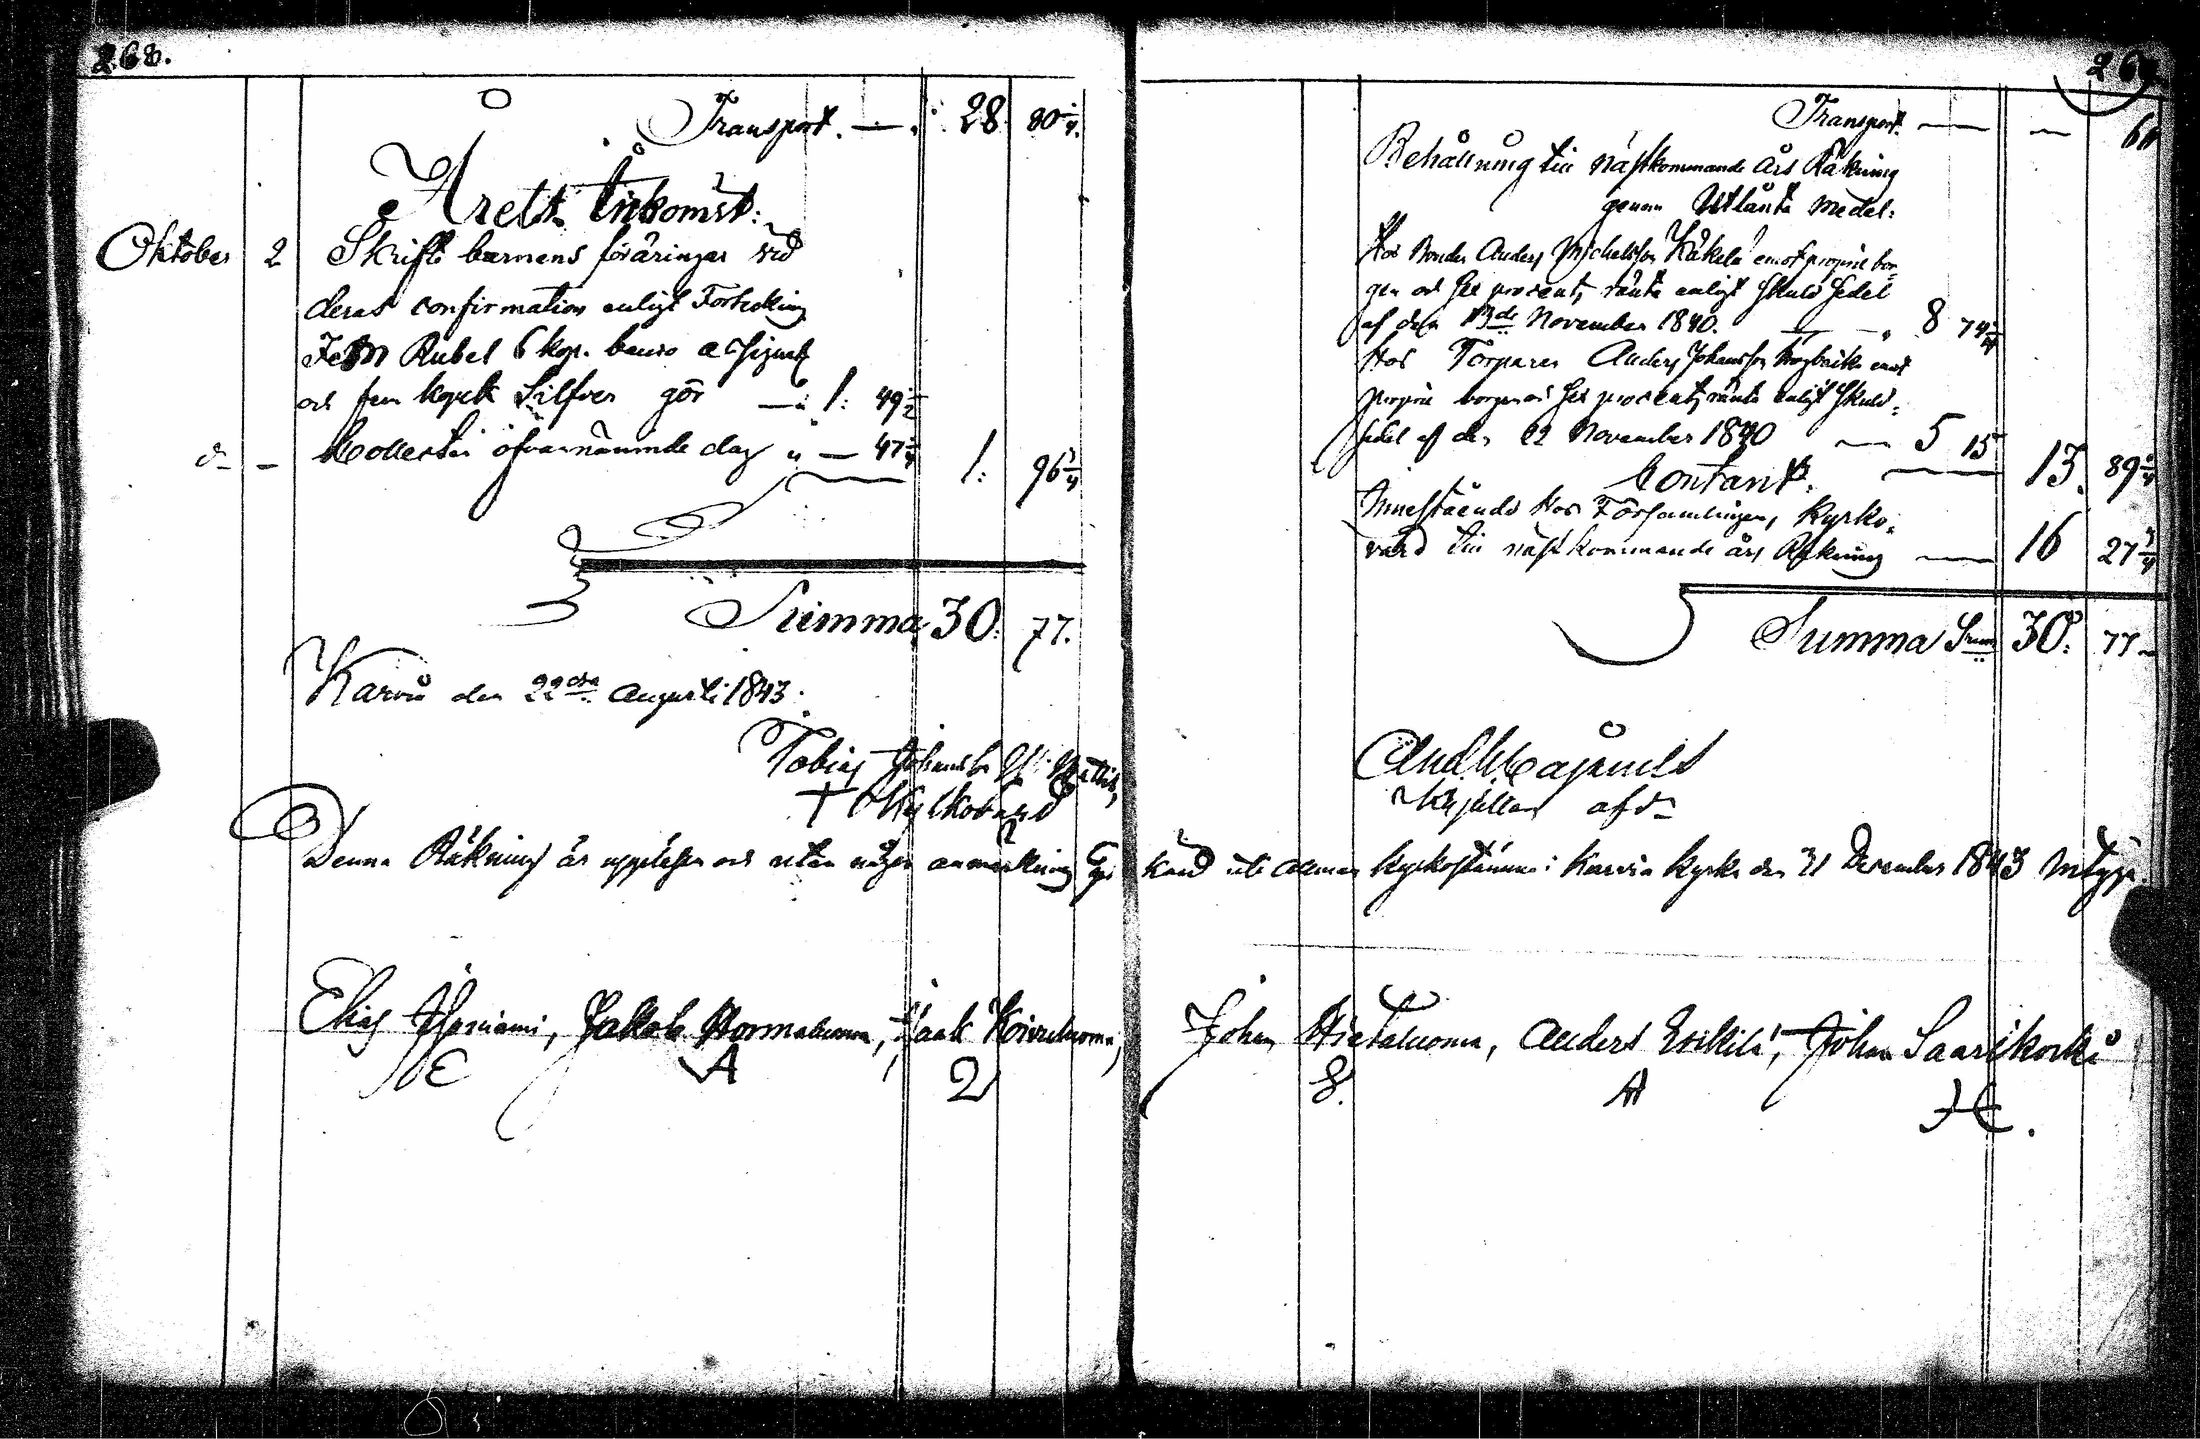 268.
Transport. — 28 80 1/4.
Årets Inkomst:
Oktober 2 Skrifte barnens föräringar vid
deras confirmation enligt Förtekning
Fem Rubel 6 kop. banco assignat
och fem kopek Silfver gör — 1: 49 1/2
d:o — Collecten ofvannämnde dag " — 47 1/4 1: 96 3/4
Summa 30: 77.
Karvia den 22dra Augusti 1843.
Tobias Johansson
Kyrkovärd
269
Transport. — — 60
Behållning till nästkommande års Räkning
genom Utlånta Medel:
Hos Bonden Anders Michelsson Käkelä emot proprie bor-
gen och sex procents ränta enligt Skuld Sedel
af den 13de November 1840. — 8 74 3/4
Hos Torparen Anders Johansson emot
proprie borgen och sex procents ränta enligt Skuld-
sedel af den 22 November 1840 — 5 15 13. 89 3/4
Contant.
Innestående hos Församlingens Kyrko-
värd till nästkommande års Räkning — 16 27 1/4
Summa 30: 77
Denna Räkning är uppläsen och utan någon anmärkning God känd uti allmän Kyrkostämma i Karvia Kyrka den 31 December 1843 intyga.
Elias, Jakob Normaluoma, Isaak Koivuluoma, Johan Hietaluoma, Anders Eskilä, Johan Saarikoski
E A 2 8. A H.